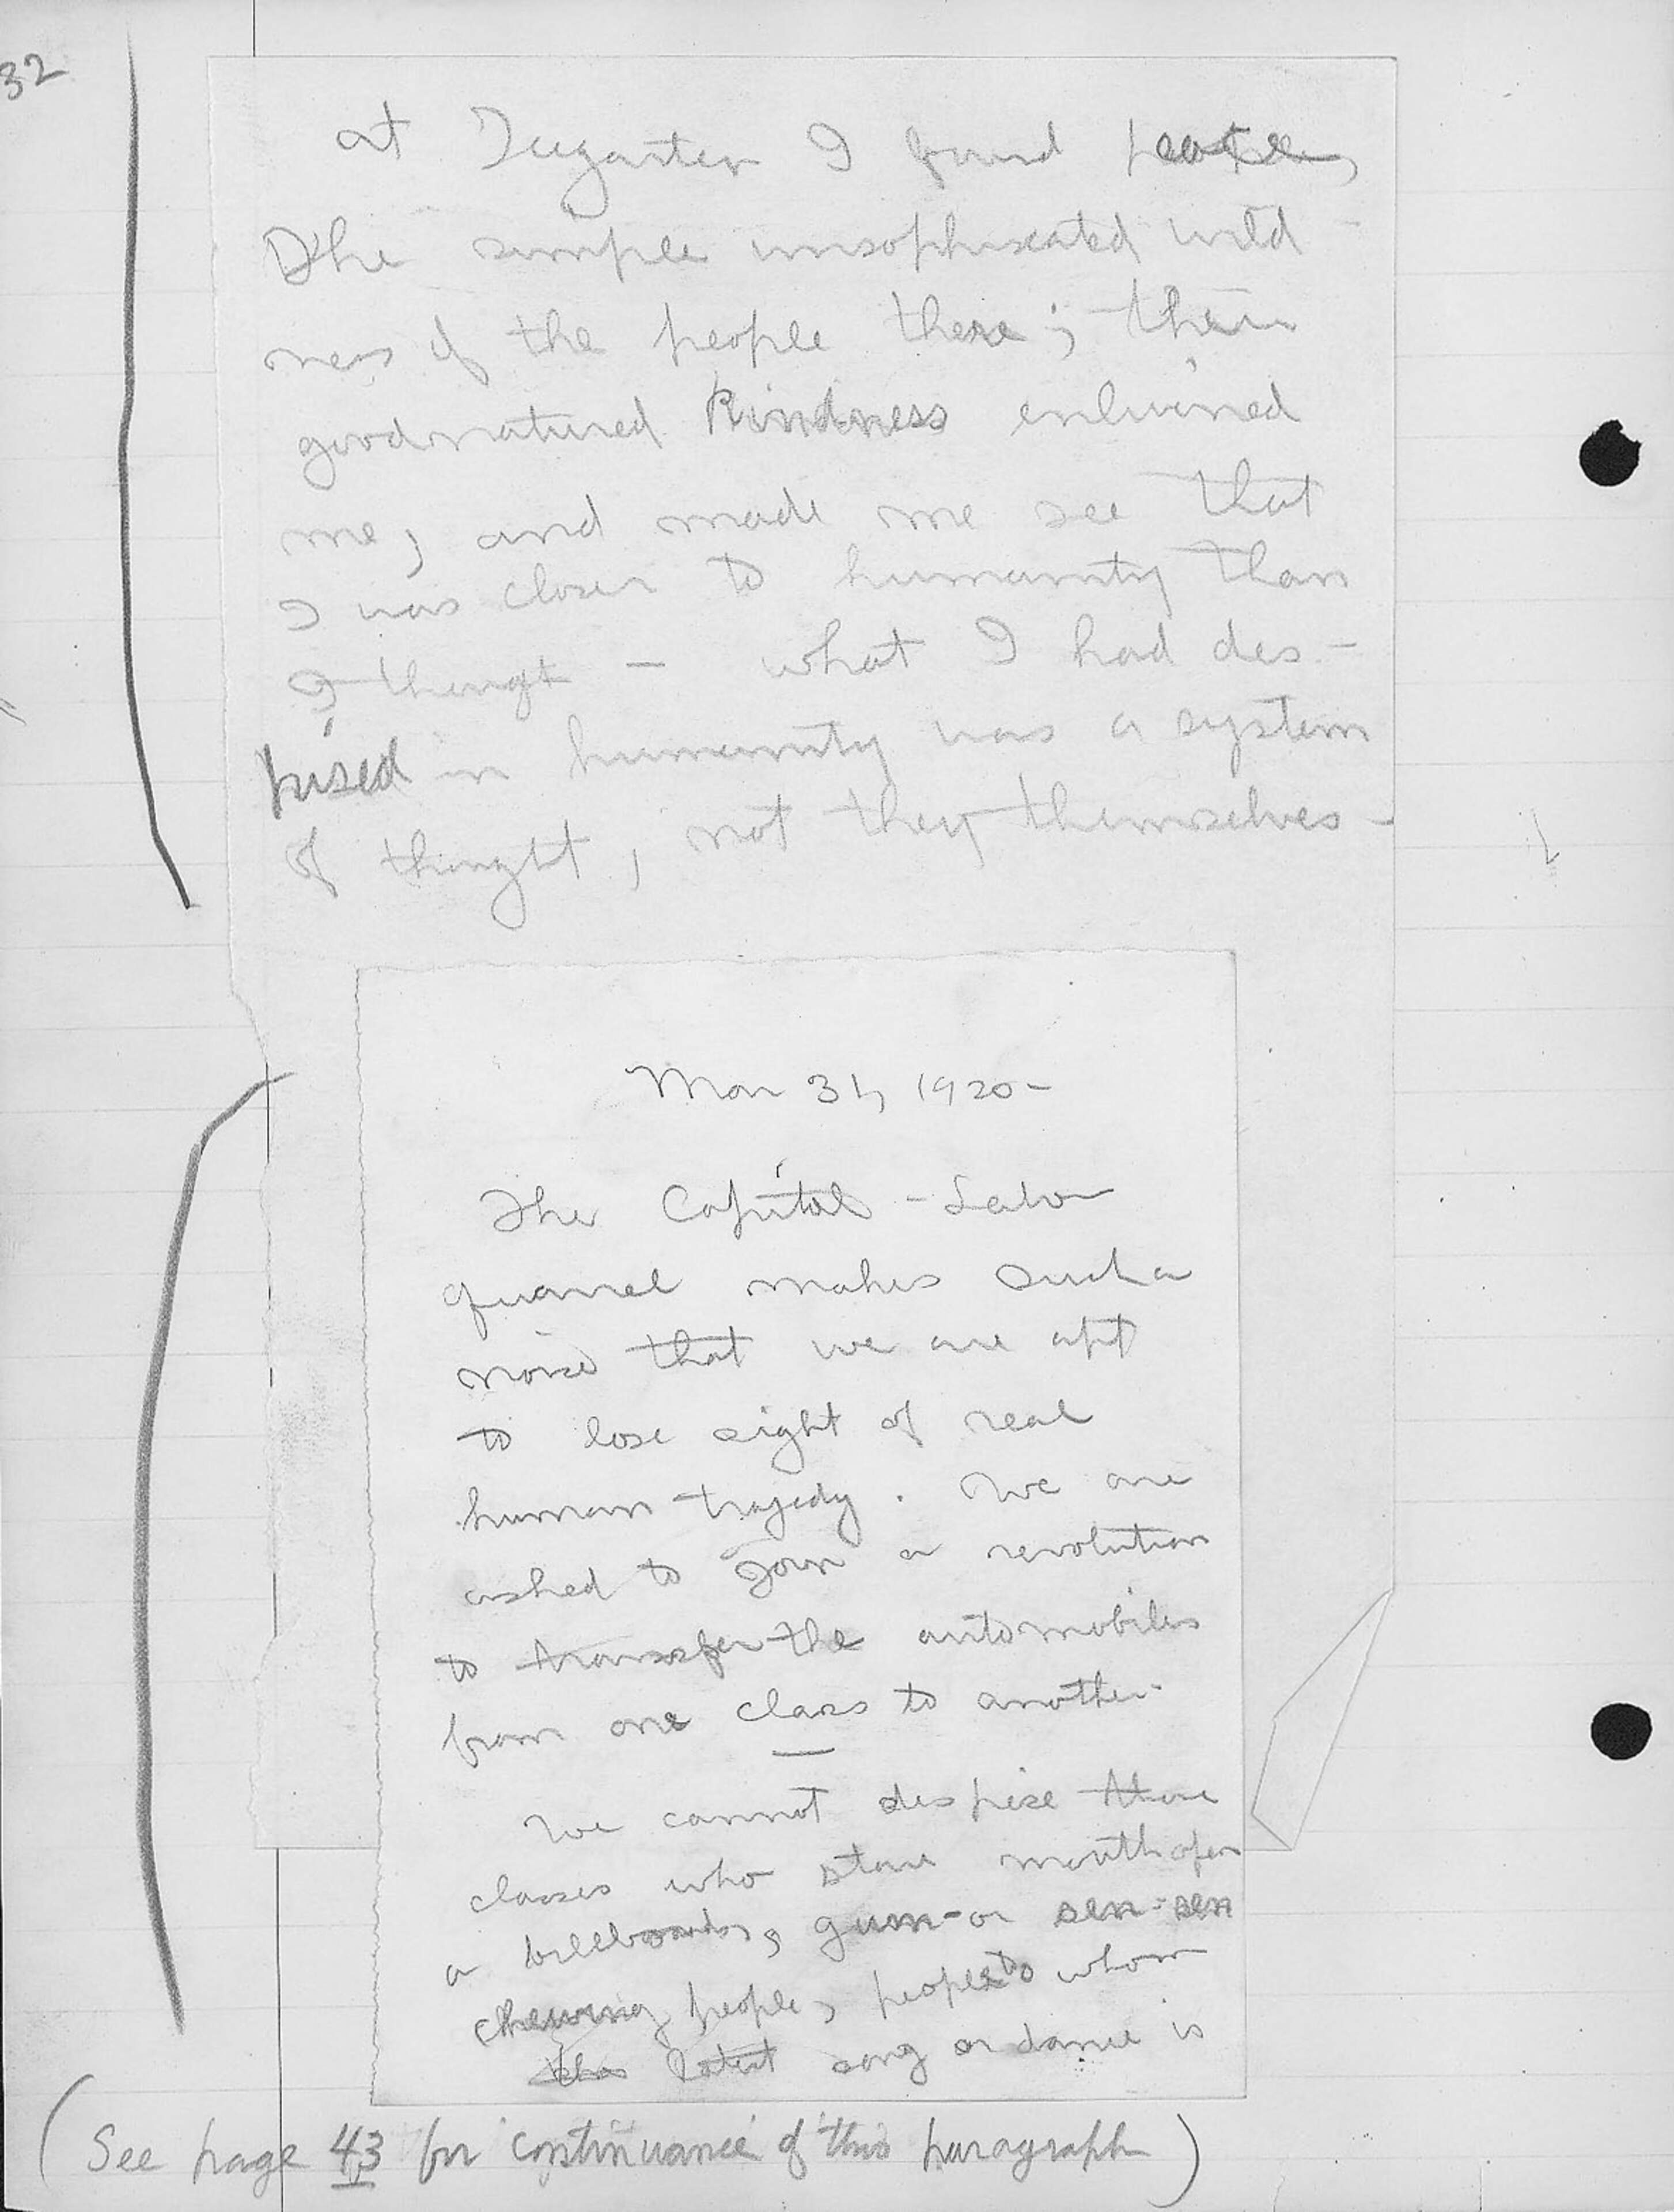 32
at Tiergarten I found peace,
The simple unsophisticated wild
ness of the people there; their
goodnatured kindness enlivened
me, and made me see that
I was closer to humanity than
I thougt — what I had des-
pised in humanity was a system
of thought, not they themselves -
Mar 31, 1920 -
The Capital - Labor
quarrel makes such a
noise that we are apt
to lose sight of real
human trajedy. We are
asked to join a revolution
to transfer the automobiles
from one class to another.
We cannot despise those
classes who stare mouth open
a billboards, gum- or sen-sen
chewing people, people to whom
the latest song or dance is
(See page 43 for continuance of this paragraph)